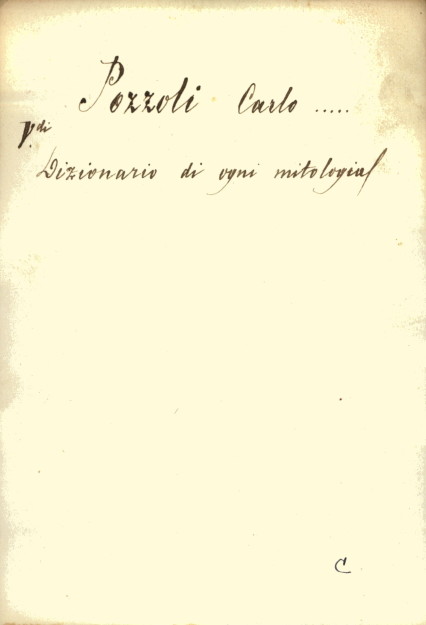 Pozzoli Carlo .....
V.di
Dizionario di ogni mitologia
C